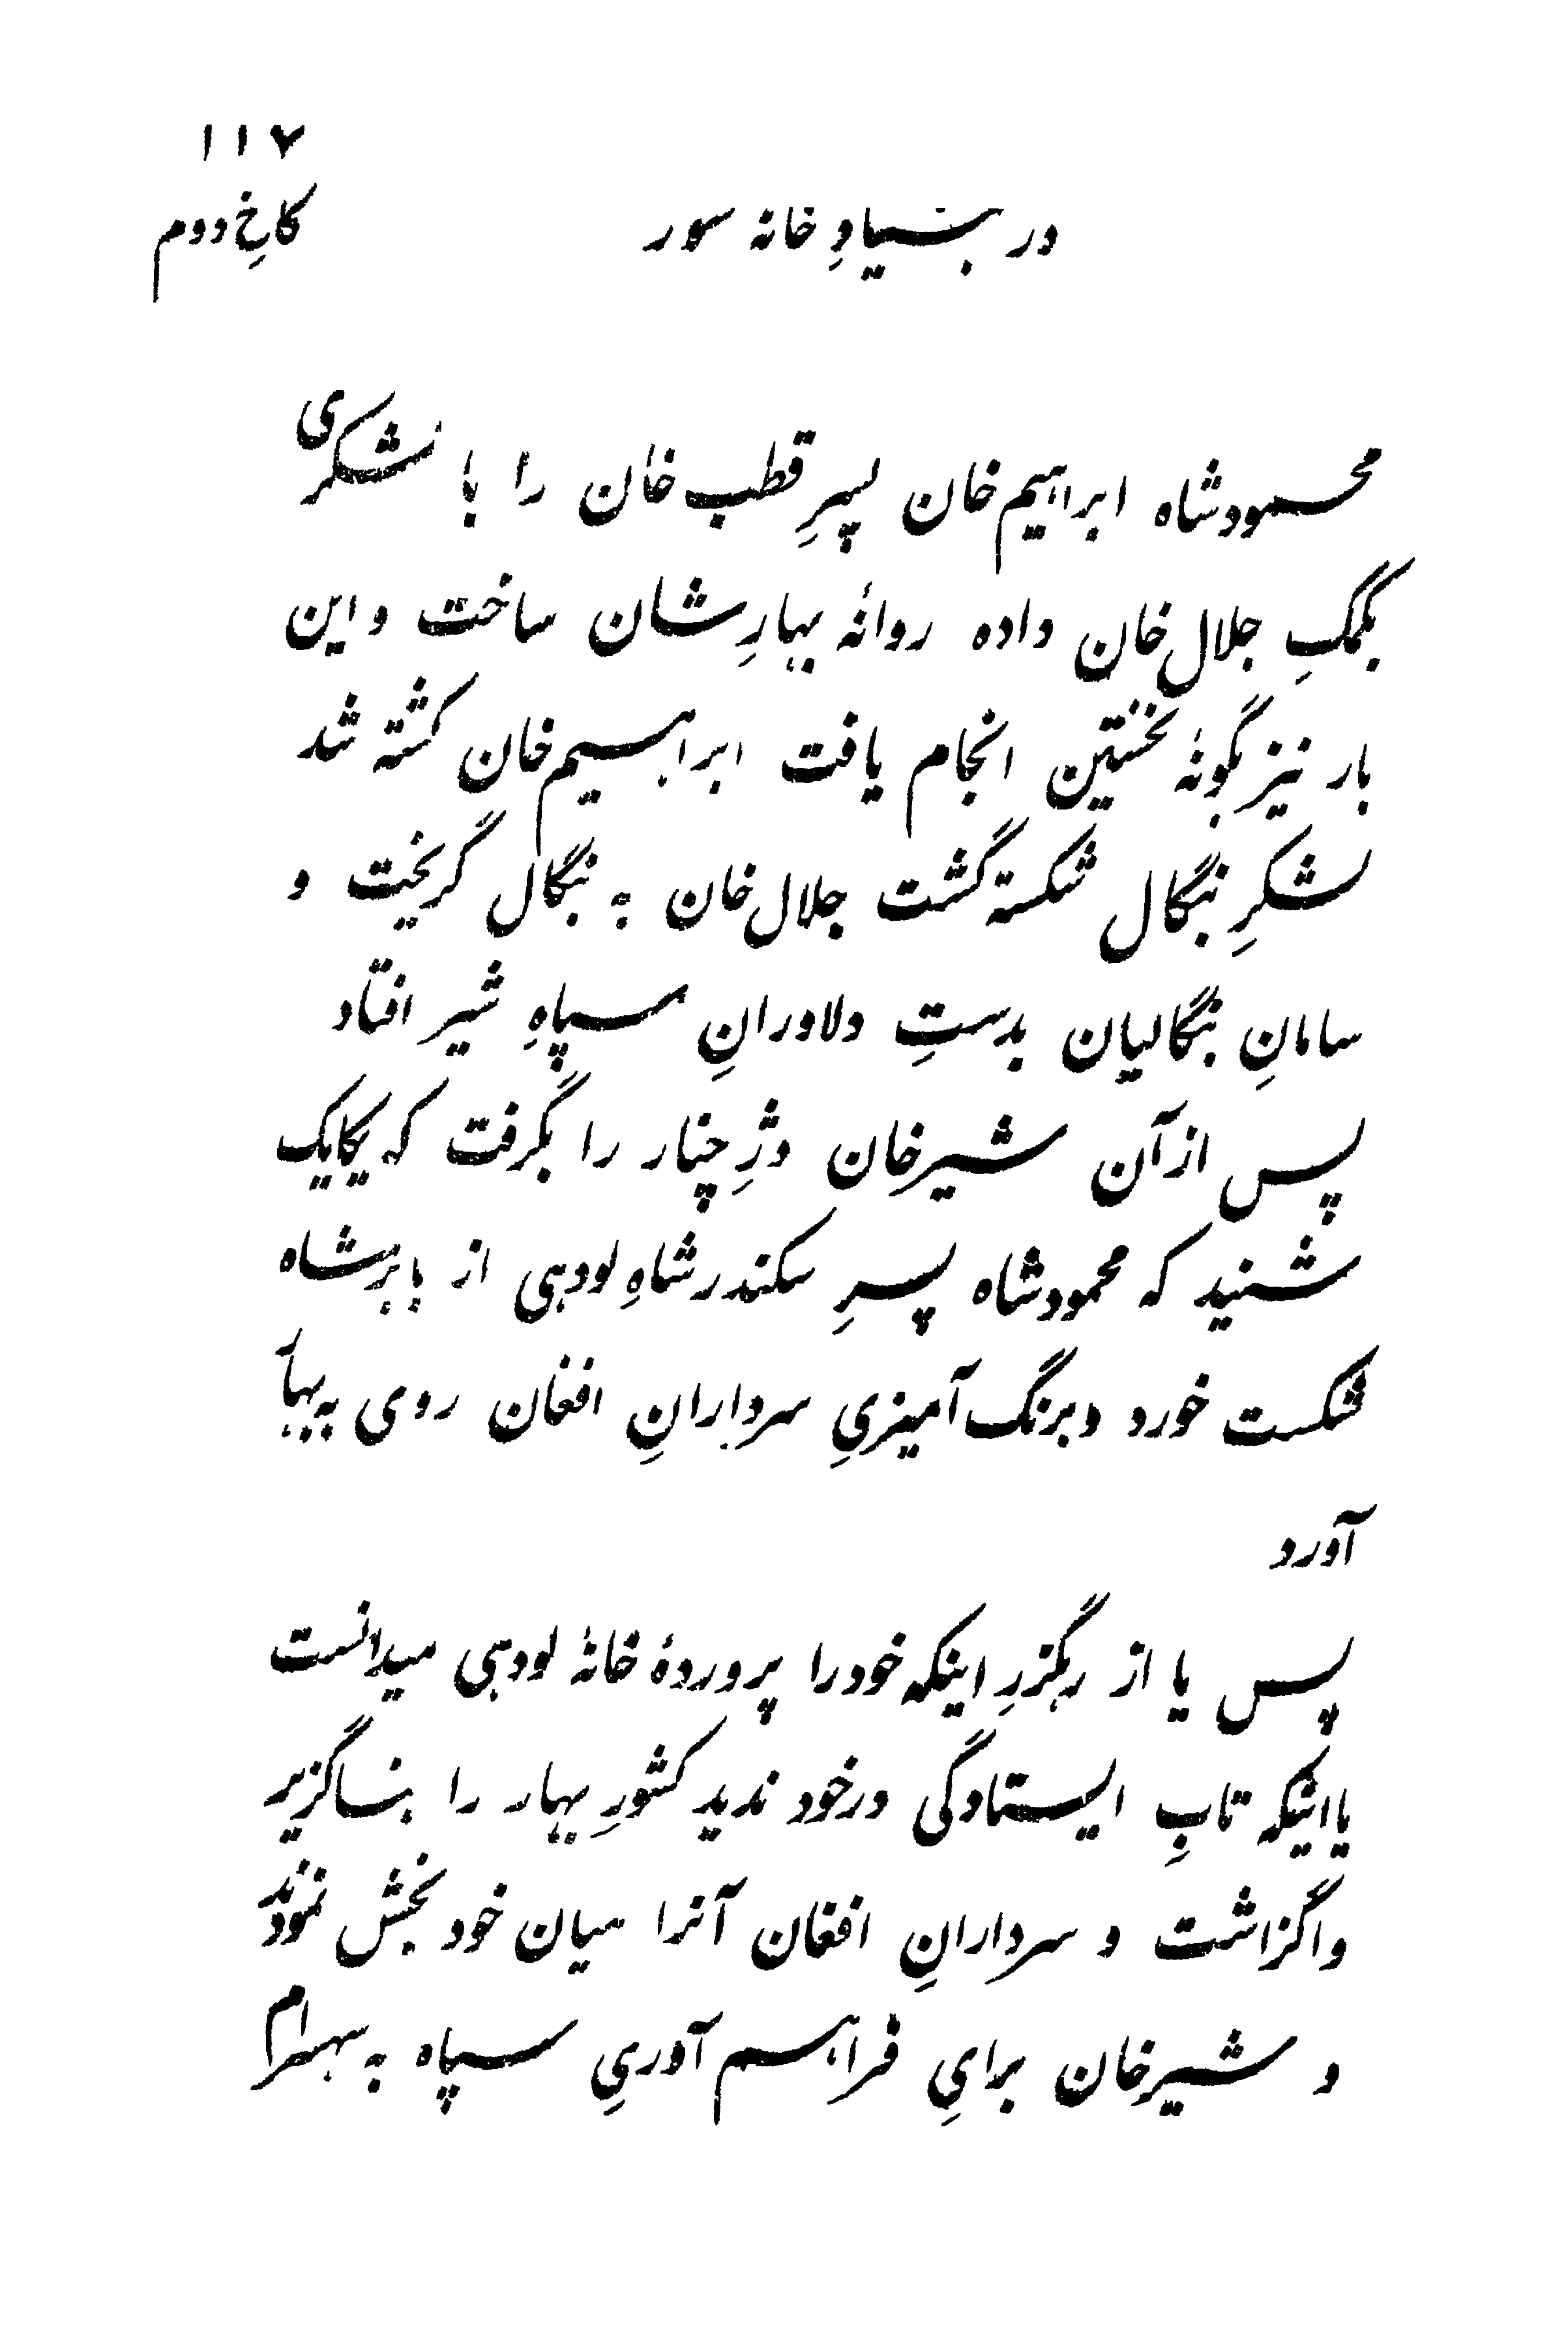 ۱۱۷
در بنیادِ خانه سور
کاخِ دوم
محمودشاه ابراهیم خان پسرِ قطب خان را با لشکری
بکمکِ جلال خان داده روانهٔ بهارِشان ساخت و این
بار نیز بگونهٔ نخستین انجام یافت ابراهیم خان کشته شد
لشکرِ بنگال شکسته گشت جلال خان به بنگال گریخت و
سامانِ بنگالیان بدستِ دلاورانِ سپاهِ شیر افتاد
پس از آن شیرخان دژِ چنار را بگرفت که یکایک
شنید که محمودشاه پسرِ سکندرشاهِ لودهی از بابرشاه
شکست خورد و برنگ آمیزیِ سردارانِ افغان روی به بهار
آورد
پس یا از رهگزرِ اینکه خود را پروردهٔ خانهٔ لودهی میدانست
یا اینکه تابِ ایستادگی در خود ندید کشورِ بهار را بناگزیر
واگزاشت و سردارانِ افغان آنرا میان خود بخش نمودند
و شیرخان برایِ فراهم آوریِ سپاه به سهسرام